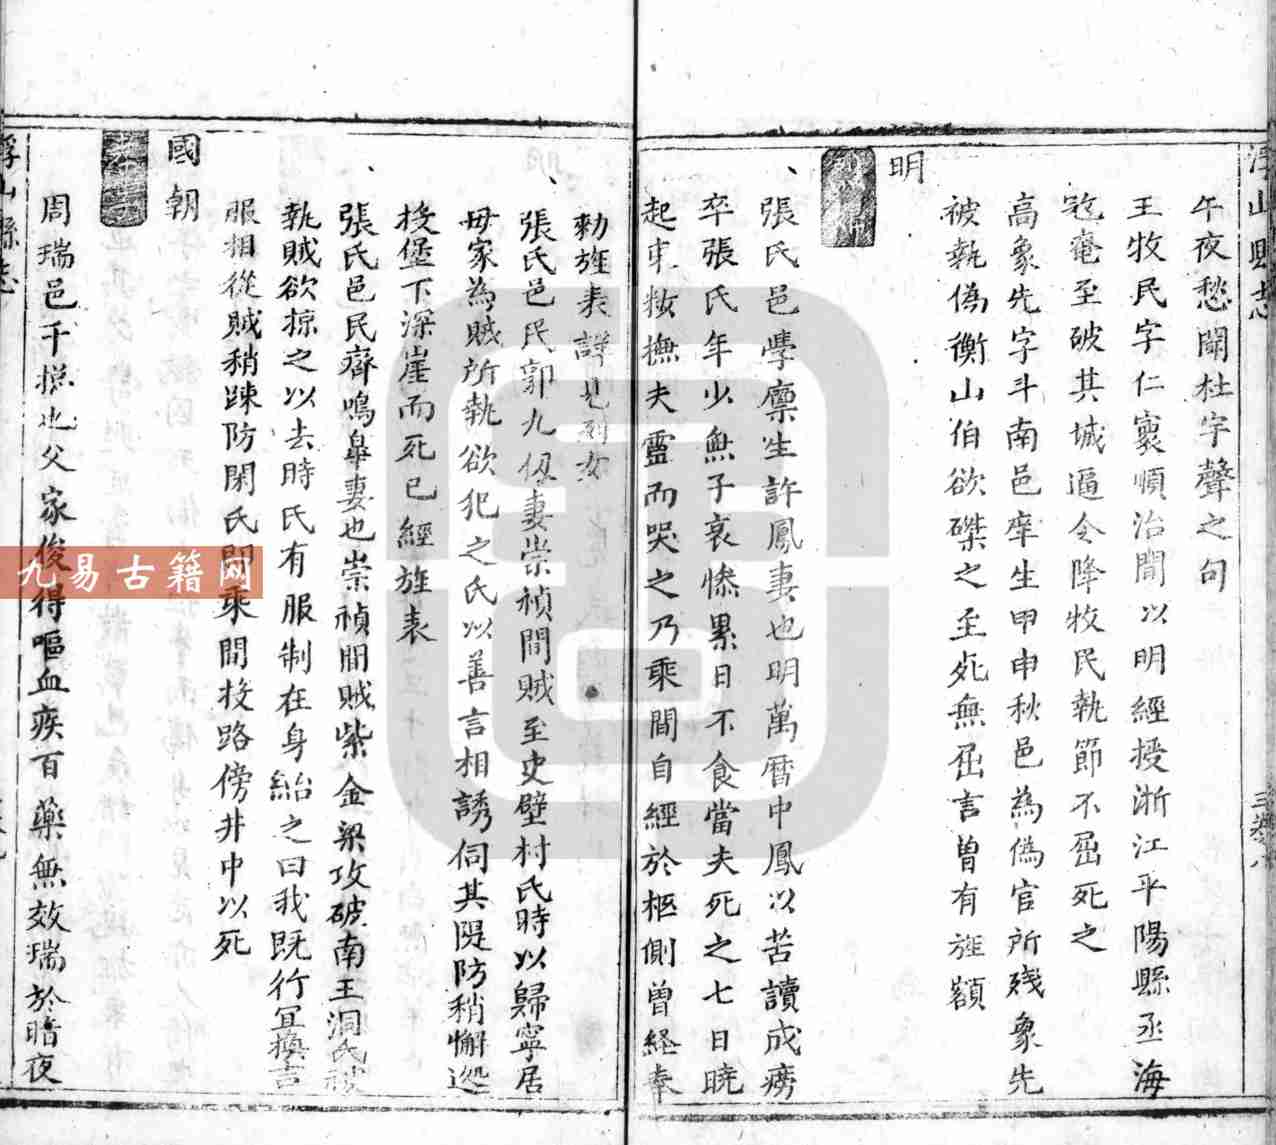 浮山縣志
午夜愁聞杜宇聲之句
王牧民字仁寰順治間以明經授浙江平陽縣丞海
寇奄至破其城逼令降牧民執節不屈死之
高象先字斗南邑庠生甲申秋邑為偽官所殘象先
被執偽衡山伯欲磔之至死無屈言曾有旌額
明
張氏邑學廩生許鳳妻也明萬曆中鳳以苦讀成癆
卒張氏年少無子哀慘累日不食當夫死之七日曉
起束粧撫夫靈而哭之乃乘間自經於柩側曾經奉
勅旌表詳見列女
張氏邑民郭九仭妻崇禎間賊至史壁村氏時以歸寧居
毋家為賊所執欲犯之氏以善言相誘伺其隄防稍懈
投堡下深崖而死已經旌表
張氏邑民齊鳴皐妻也崇禎間賊紫金梁攻破南王洞氏被
執賊欲掠之以去時氏有服制在身紿之曰我既行宜換吉
服相從賊稍踈防閑氏即乘間投路傍井中以死
國朝
周瑞邑千摠也父家俊得嘔血疾百藥無效瑞於暗夜
浮山縣志
九易古籍网